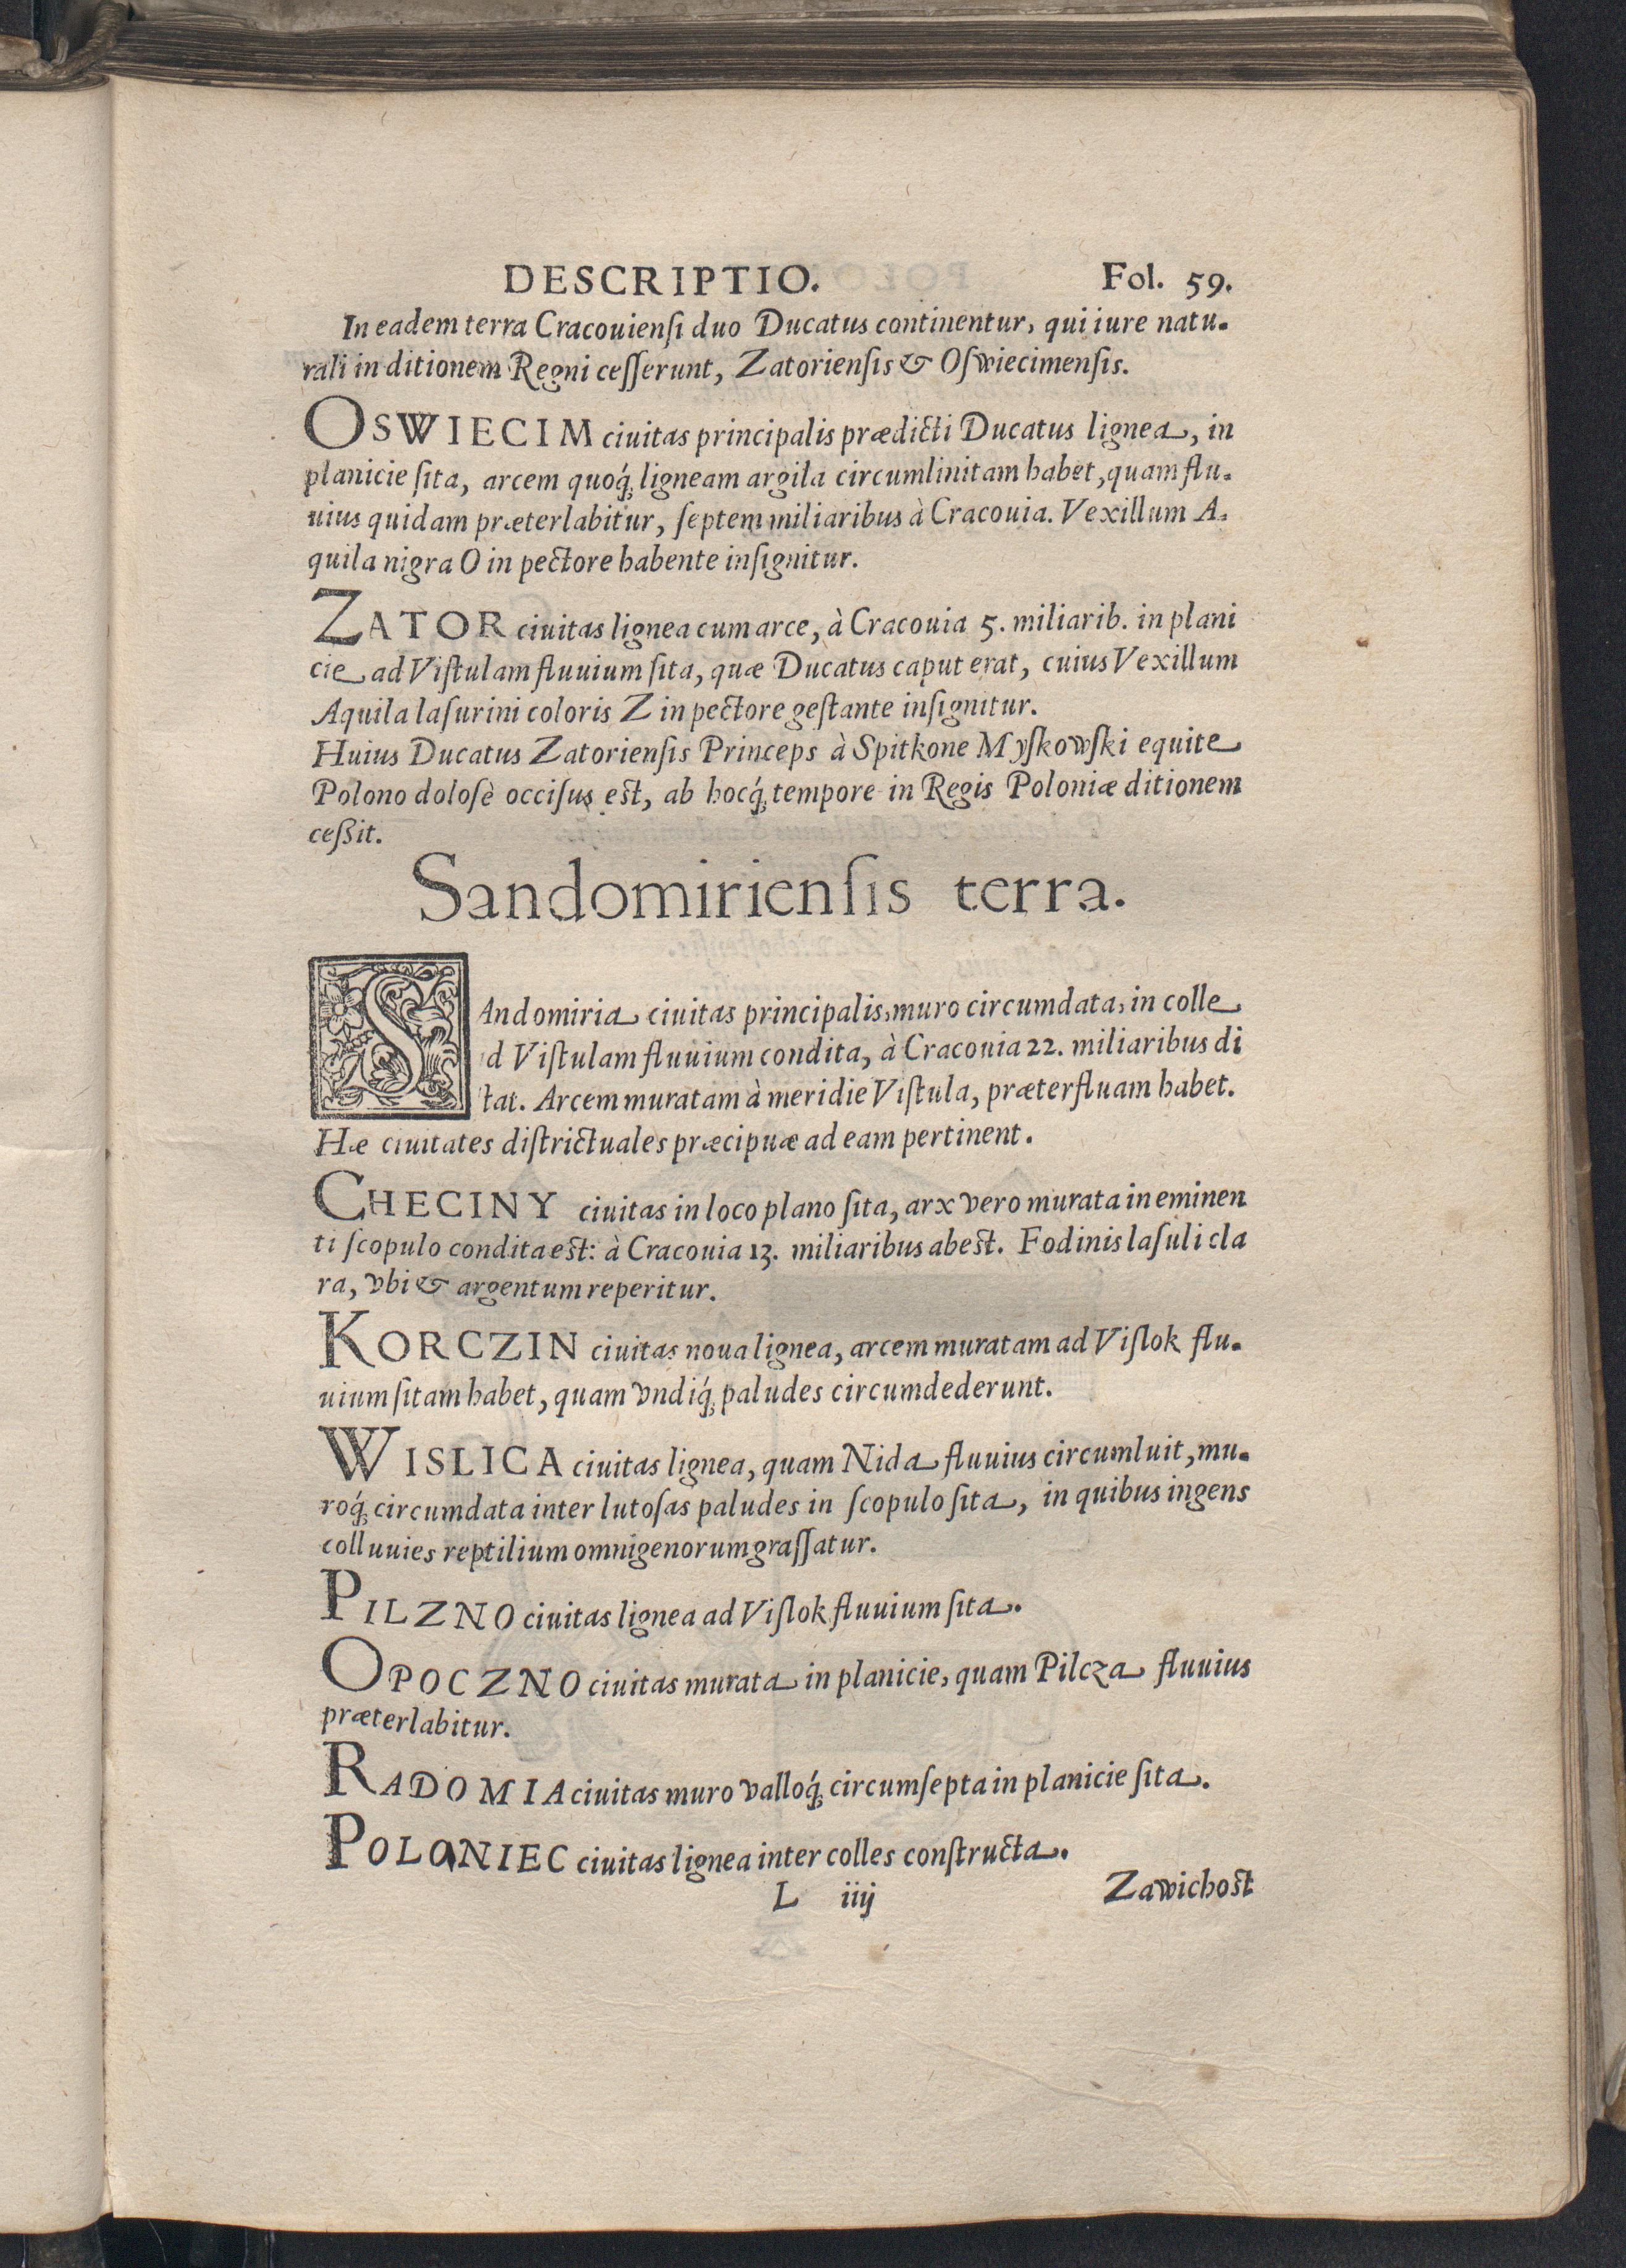 DESCRIPTIO. Fol. 59.
In eadem terra Cracouiensi duo Ducatus continentur, qui iure natu-
rali in ditionem Regni cesserunt, Zatoriensis & Oswiecimensis.
OSWIECIM ciuitas principalis prædicti Ducatus lignea, in
planicie sita, arcem quoq́; ligneam argila circumlinitam habet, quam flu-
uius quidam præterlabitur, septem miliaribus à Cracouia. Vexillum A-
quila nigra O in pectore habente insignitur.
ZATOR ciuitas lignea cum arce, à Cracouia 5. miliarib. in plani
cie ad Vistulam fluuium sita, quæ Ducatus caput erat, cuius Vexillum
Aquila lasurini coloris Z in pectore gestante insignitur.
Huius Ducatus Zatoriensis Princeps à Spitkone Myskowski equite
Polono dolosè occisus est, ab hocq́; tempore in Regis Poloniæ ditionem
ceßit.
Sandomiriensis terra.
SAndomiria ciuitas principalis, muro circumdata, in colle
ad Vistulam fluuium condita, à Cracouia 22. miliaribus di
stat. Arcem muratam à meridie Vistula, præterfluam habet.
Hæ ciuitates districtuales præcipuæ ad eam pertinent.
CHECINY ciuitas in loco plano sita, arx vero murata in eminen
ti scopulo condita est: à Cracouia 13. miliaribus abest. Fodinis lasuli cla
ra, vbi & argentum reperitur.
KORCZIN ciuitas noua lignea, arcem muratam ad Vislok flu-
uium sitam habet, quam vndiq́; paludes circumdederunt.
WISLICA ciuitas lignea, quam Nida fluuius circumluit, mu-
roq́; circumdata inter lutosas paludes in scopulo sita, in quibus ingens
colluuies reptilium omnigenorum grassatur.
PILZNO ciuitas lignea ad Vislok fluuium sita.
OPOCZNO ciuitas murata in planicie, quam Pilcza fluuius
præterlabitur.
RADOMIA ciuitas muro valloq́; circumsepta in planicie sita.
POLONIEC ciuitas lignea inter colles constructa.
L iiij Zawichost